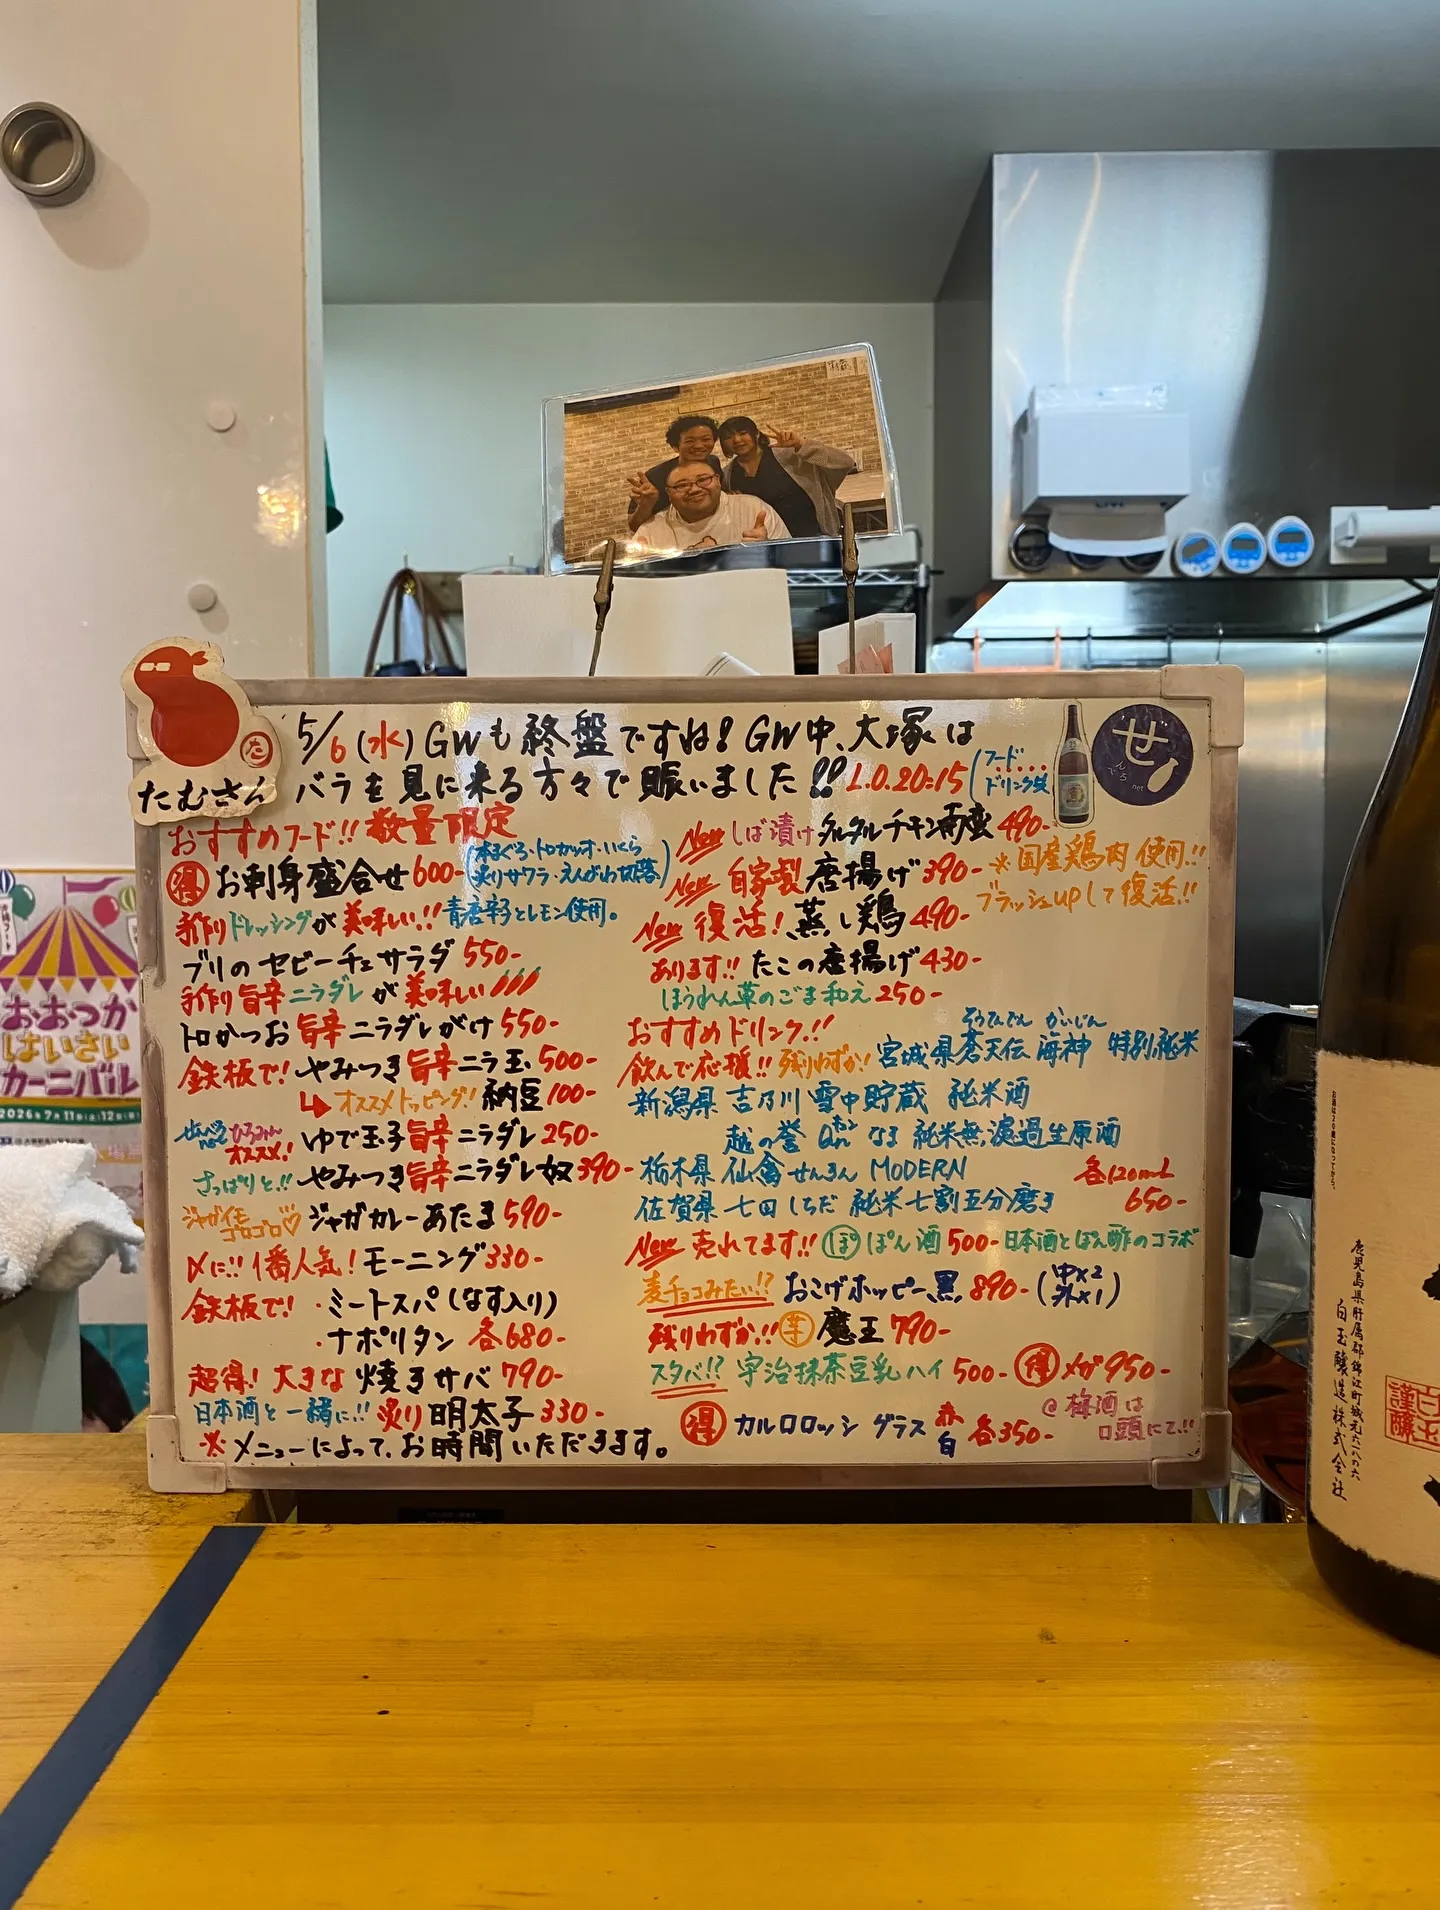 5/6(水)GWも終盤ですね!GW中、大塚は
バラを見に来る方々で賑いました!!
L.O.20:15(フード...
ドリンク
せ
んべろ
net
た
たむさん
おすすめフード!!数量限定
得 お刺身盛合せ600-(本まぐろ・トロカツオ・いくら
炙りサワラ・えんがわ切落)
手作りドレッシングが美味しい!!青唐辛子とレモン使用。
ブリのセビーチェサラダ550-
手作り旨辛ニラダレが美味しい!!!
トロかつお旨辛ニラダレがけ550-
鉄板で!やみつき旨辛ニラ玉500-
オススメトッピング!納豆100-
せんべろひろみん
オススメ!ゆで玉子旨辛ニラダレ250-
さっぱりと!!やみつき旨辛ニラダレ奴390-
ジャガイモ
ゴロゴロ♡ジャガカレーあたま590-
〆に!!1番人気!モーニング330-
鉄板で!・ミートスパ(なす入り)
・ナポリタン 各680-
超得!大きな焼きサバ790-
日本酒と一緒に!!炙り明太子330-
※メニューによって、お時間いただきます。
New しば漬けタルタルチキン南蛮490-
New 自家製唐揚げ390-
※国産鶏肉使用!!
ブラッシュupして復活!!
New 復活!蒸し鶏490-
あります!!たこの唐揚げ430-
ほうれん草のごま和え250-
おすすめドリンク!!
そうてんでん かいじん
飲んで応援!!残りわずか!宮城県蒼天伝 海神 特別純米
新潟県 吉乃川 雪中貯蔵 純米酒
越の誉 なま 純米無濾過生原酒
栃木県 仙禽せんきん MODERN
佐賀県 七田しちだ 純米七割五分磨き
各120mL
650-
New 売れてます!!ぽ ぽん酒500-日本酒とぽん酢のコラボ
麦チョコみたい!?おこげホッピー黒890-(中×2
外×1)
残りわずか!!芋 魔王790-
スタバ!?宇治抹茶豆乳ハイ500-得メガ950-
得 カルロロッシ グラス 赤
白 各350-
@梅酒は
口頭にて!!
おおつか
はいさい
カーニバル
2026年7月11日(土)12日
お酒は20歳になってから。
鹿児島県肝属郡錦江町城元六一八の六
白玉醸造株式会社
白玉
謹醸